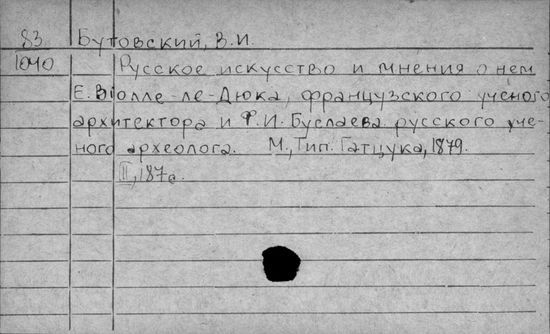 83 Бутовский, В.И.
1040. Русское искусство и мнения о нем
Е. Виолле-ле-Дюка, французского ученого
архитектора и Ф.И. Буслаева русского уче-
ного археолога. М., Тип. Гатцука, 1879.
II, 187с.